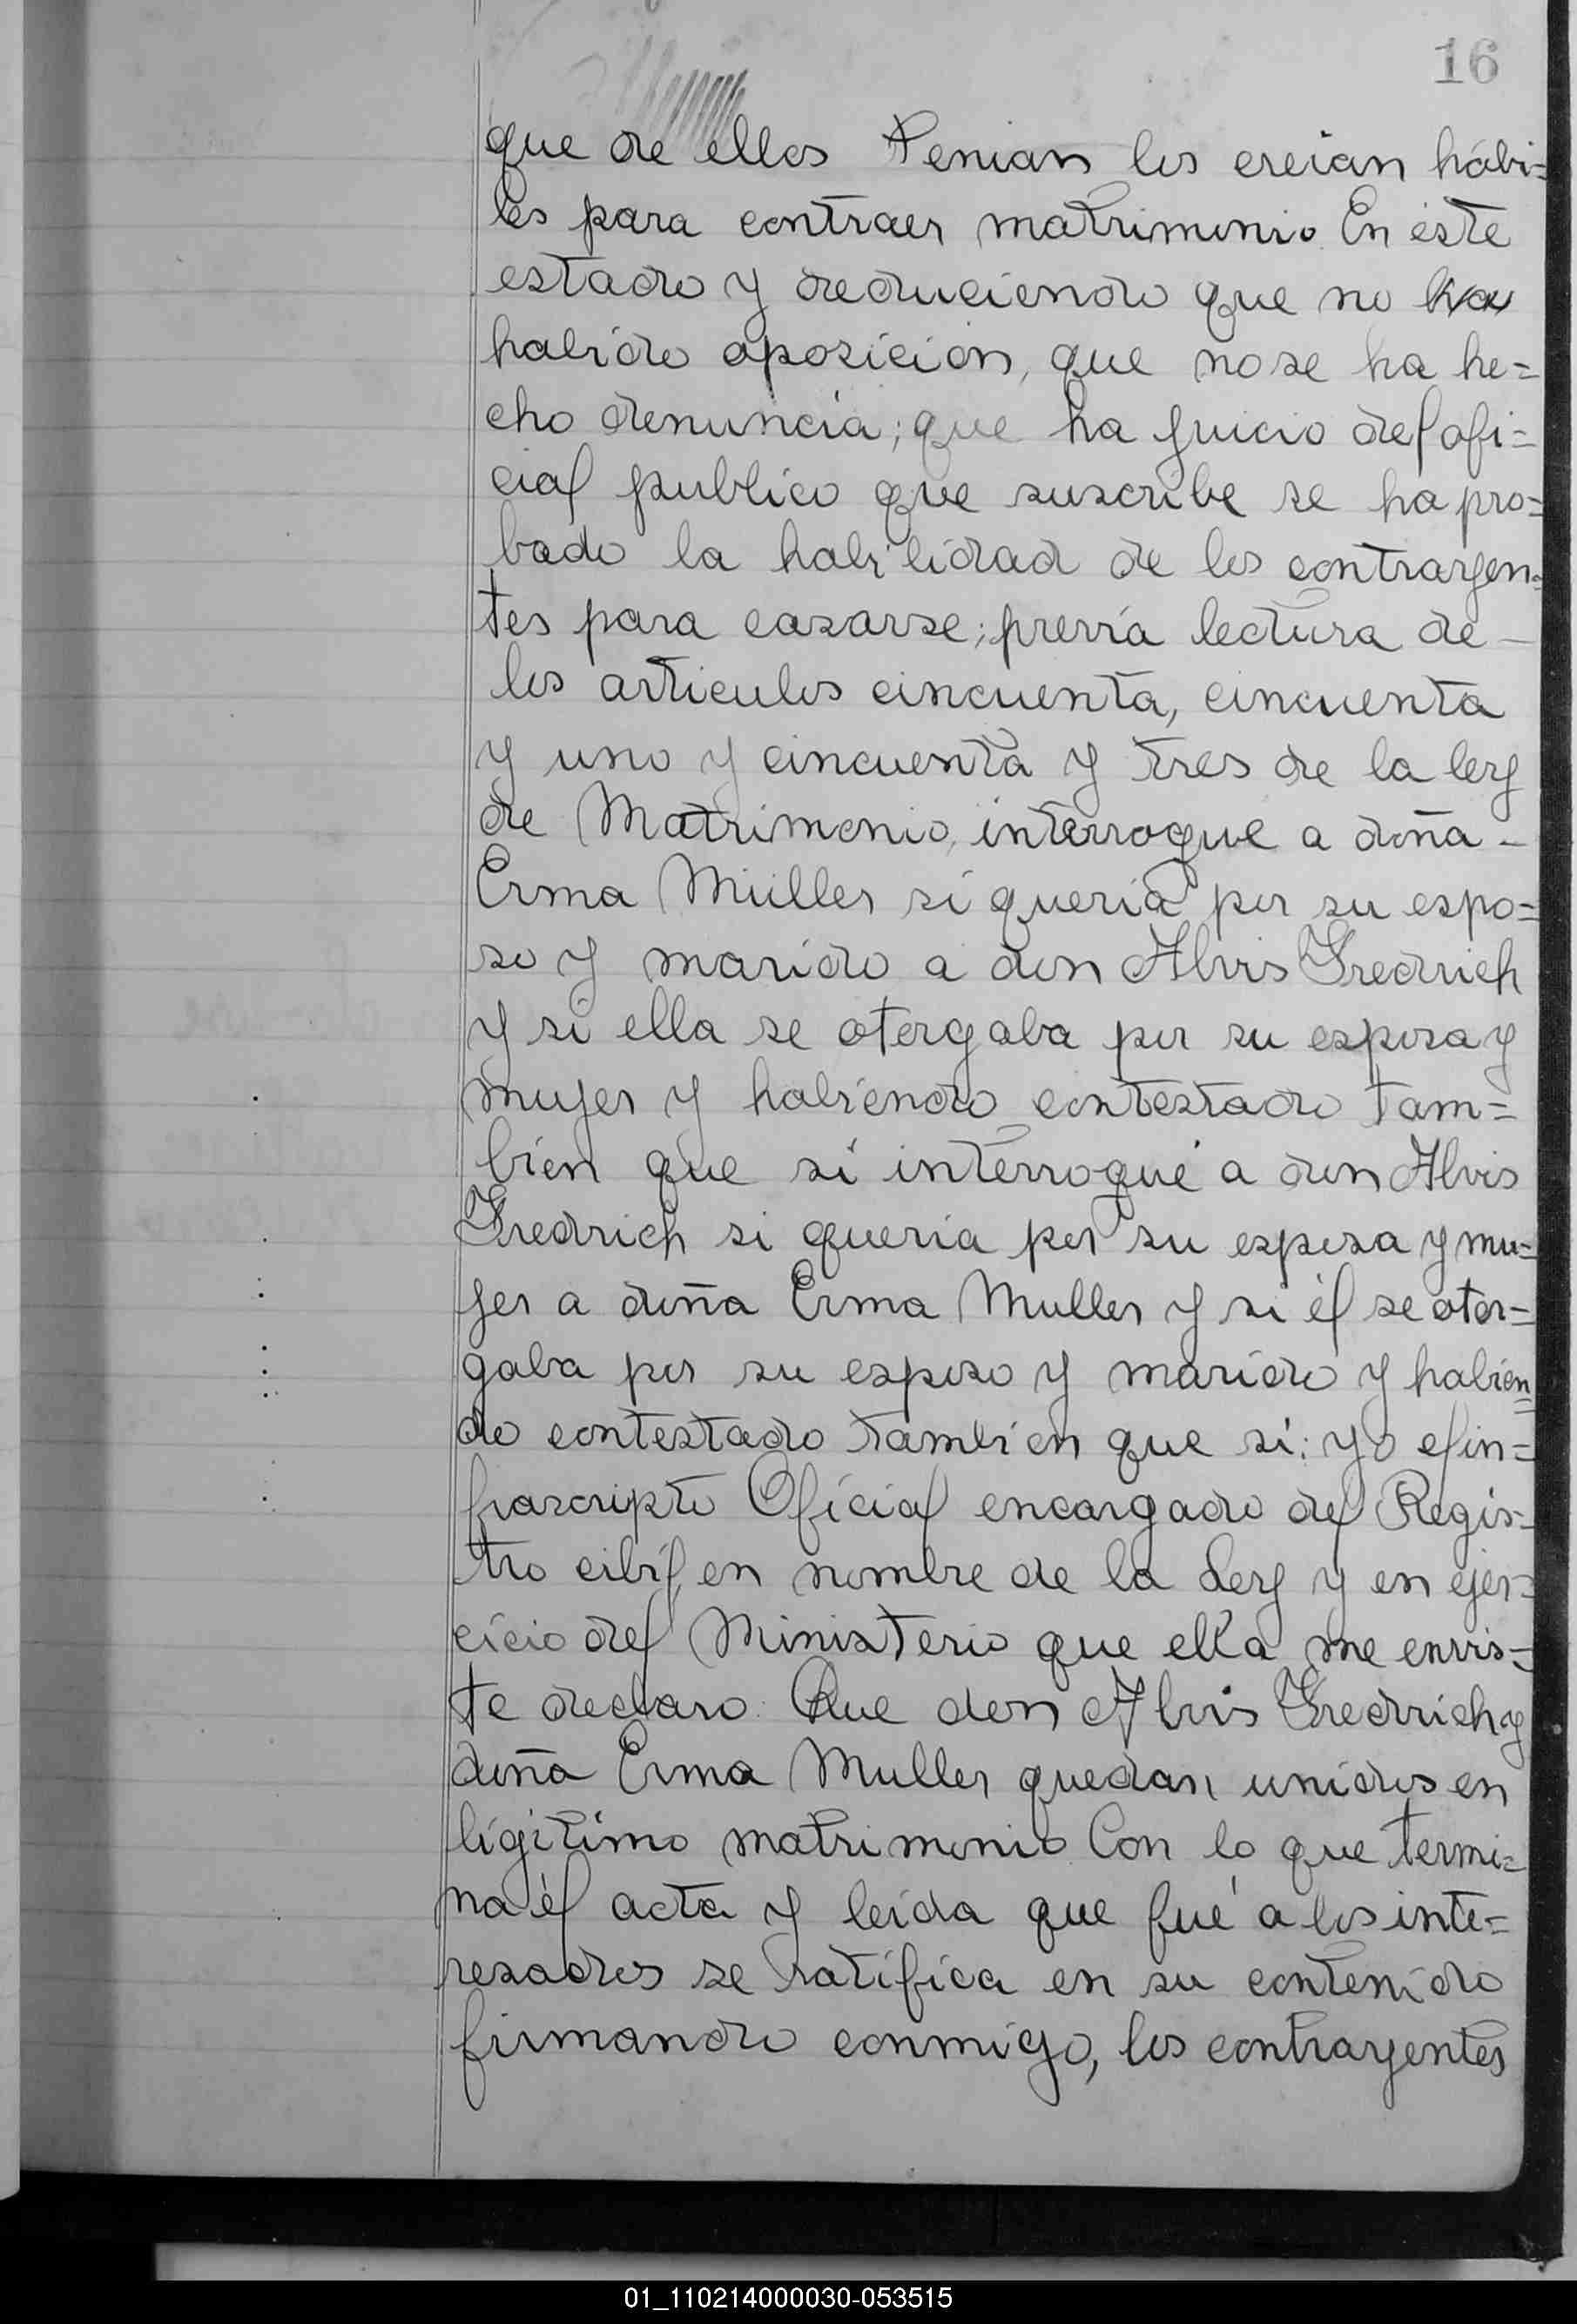 16
que de ellos tenian los creian hábi=
les para contraer matrimonio. En éste
estado y deduciendo que no ha
habido oposición, que no se ha he=
cho denuncia; que ha juicio del ofi=
cial publico que suscribe se ha pro=
bado la habilidad de los contrayen=
tes para casarse; previa lectura de
los articulos cincuenta, cincuenta
y uno y cincuenta y tres de la ley
de Matrimonio, interroque a doña
Erma Müller si queria por su espo=
so y marido a don Alvis Fredrich
y si ella se otorgaba por su esposa y
mujer y habiendo contestado tam=
bien que si interroqué a don Alvis
Fredrich si queria por su esposa y mu=
jer a doña Erma Muller y si él se otor=
gaba por su esposo y marido y habien=
do contestado tambien que si: yo el in=
frascripto Oficial encargado del Regis=
tro cibil, en nombre de la Ley y en ejer=
cicio del Ministerio que ella me envis=
te declaro: Que don Alvis Fredrich y
doña Erma Muller quedan unidos en
ligitimo matrimonio. Con lo que termi=
na él acta y leida que fué a los inte=
resados se ratifica en su contenido
firmando conmigo, los contrayentes
01_110214000030-053515